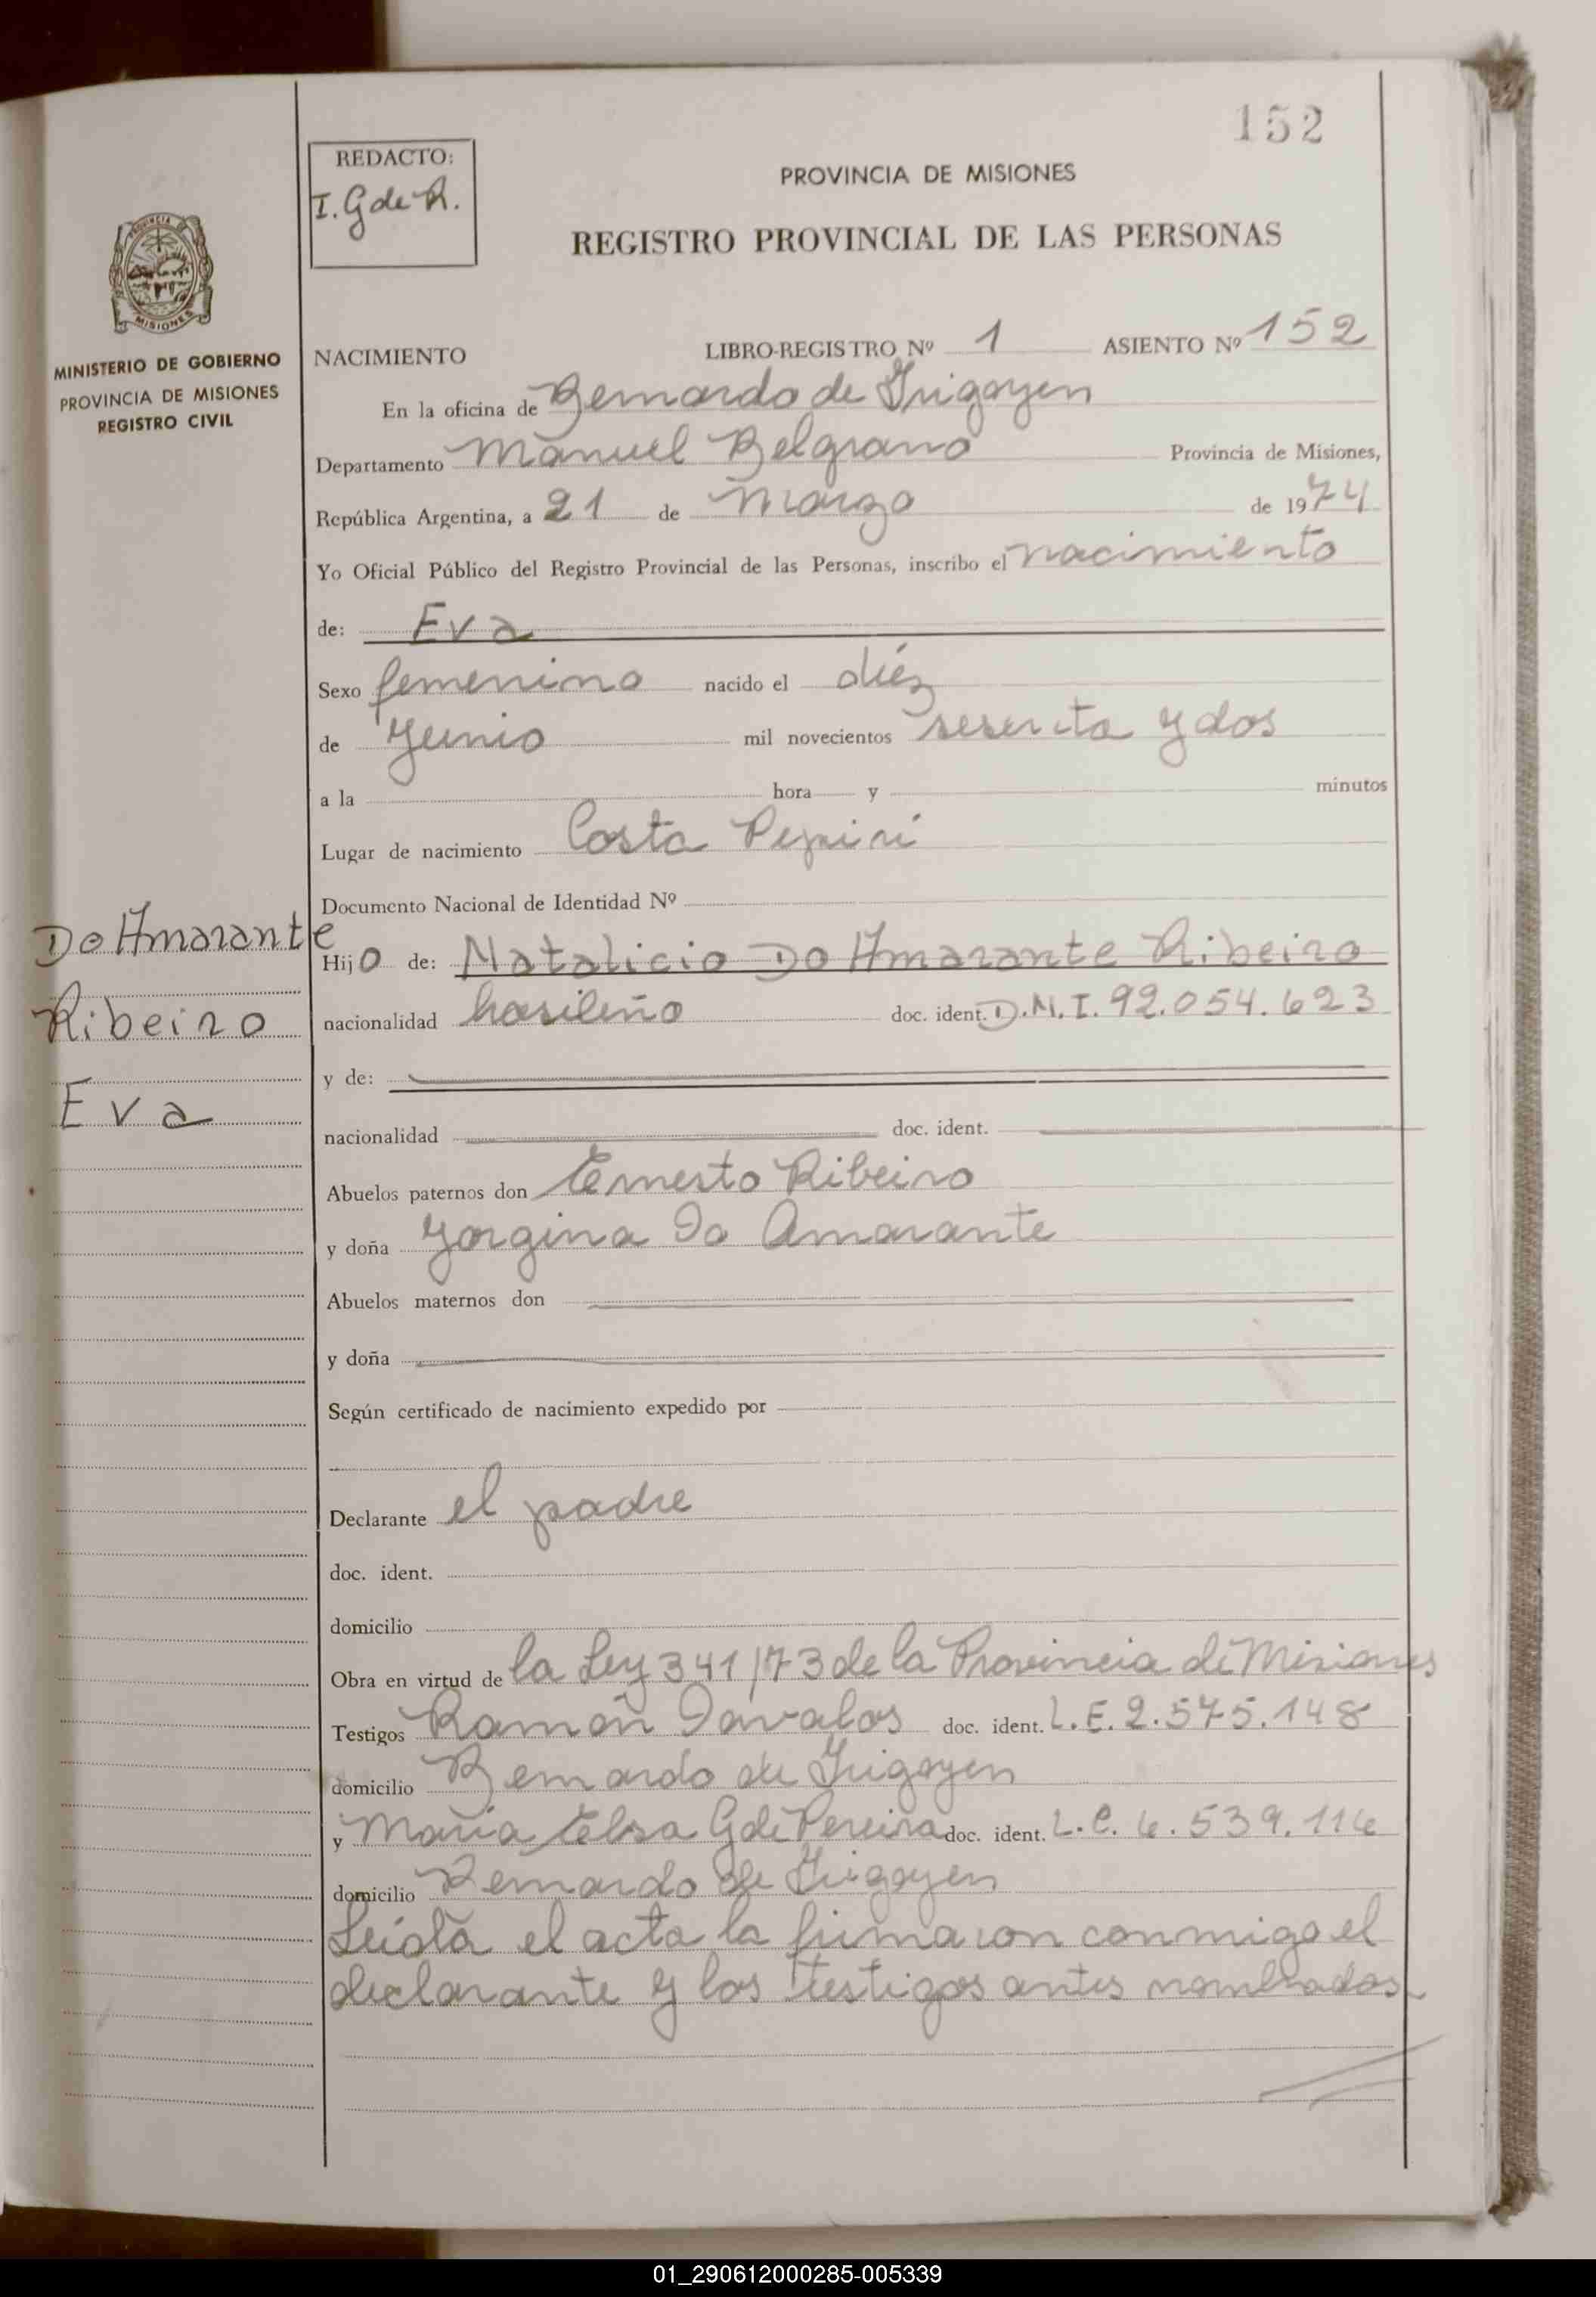 152
REDACTO:
I. G de R.
PROVINCIA DE MISIONES
REGISTRO PROVINCIAL DE LAS PERSONAS
PROVINCIA DE
MISIONES
MINISTERIO DE GOBIERNO
PROVINCIA DE MISIONES
REGISTRO CIVIL
NACIMIENTO LIBRO-REGISTRO Nº 1 ASIENTO Nº 152
En la oficina de Bernardo de Irigoyen
Departamento Manuel Belgrano Provincia de Misiones,
República Argentina, a 21 de Marzo de 1974
Yo Oficial Público del Registro Provincial de las Personas, inscribo el nacimiento
de: Eva
Sexo femenino nacido el diéz
de Junio mil novecientos sesenta y dos
a la hora y minutos
Lugar de nacimiento Costa Pepirí
Documento Nacional de Identidad Nº
Do Amarante
Ribeiro
Eva
Hijo de: Natalicio Do Amarante Ribeiro
nacionalidad brasileño doc. ident. D.N.I. 92.054.623
y de:
nacionalidad doc. ident.
Abuelos paternos don Ernesto Ribeiro
y doña Jorgina Do Amarante
Abuelos maternos don
y doña
Según certificado de nacimiento expedido por
Declarante el padre
doc. ident.
domicilio
Obra en virtud de la Ley 341/73 de la Provincia de Misiones
Testigos Ramón Davalos doc. ident. L.E. 2.575.148
domicilio Bernardo de Irigoyen
y María Elsa G de Pereira doc. ident. L.C. 6.539.116
domicilio Bernardo de Irigoyen
Leída el acta la firmaron conmigo el
declarante y los testigos antes nombrados
01_290612000285-005339